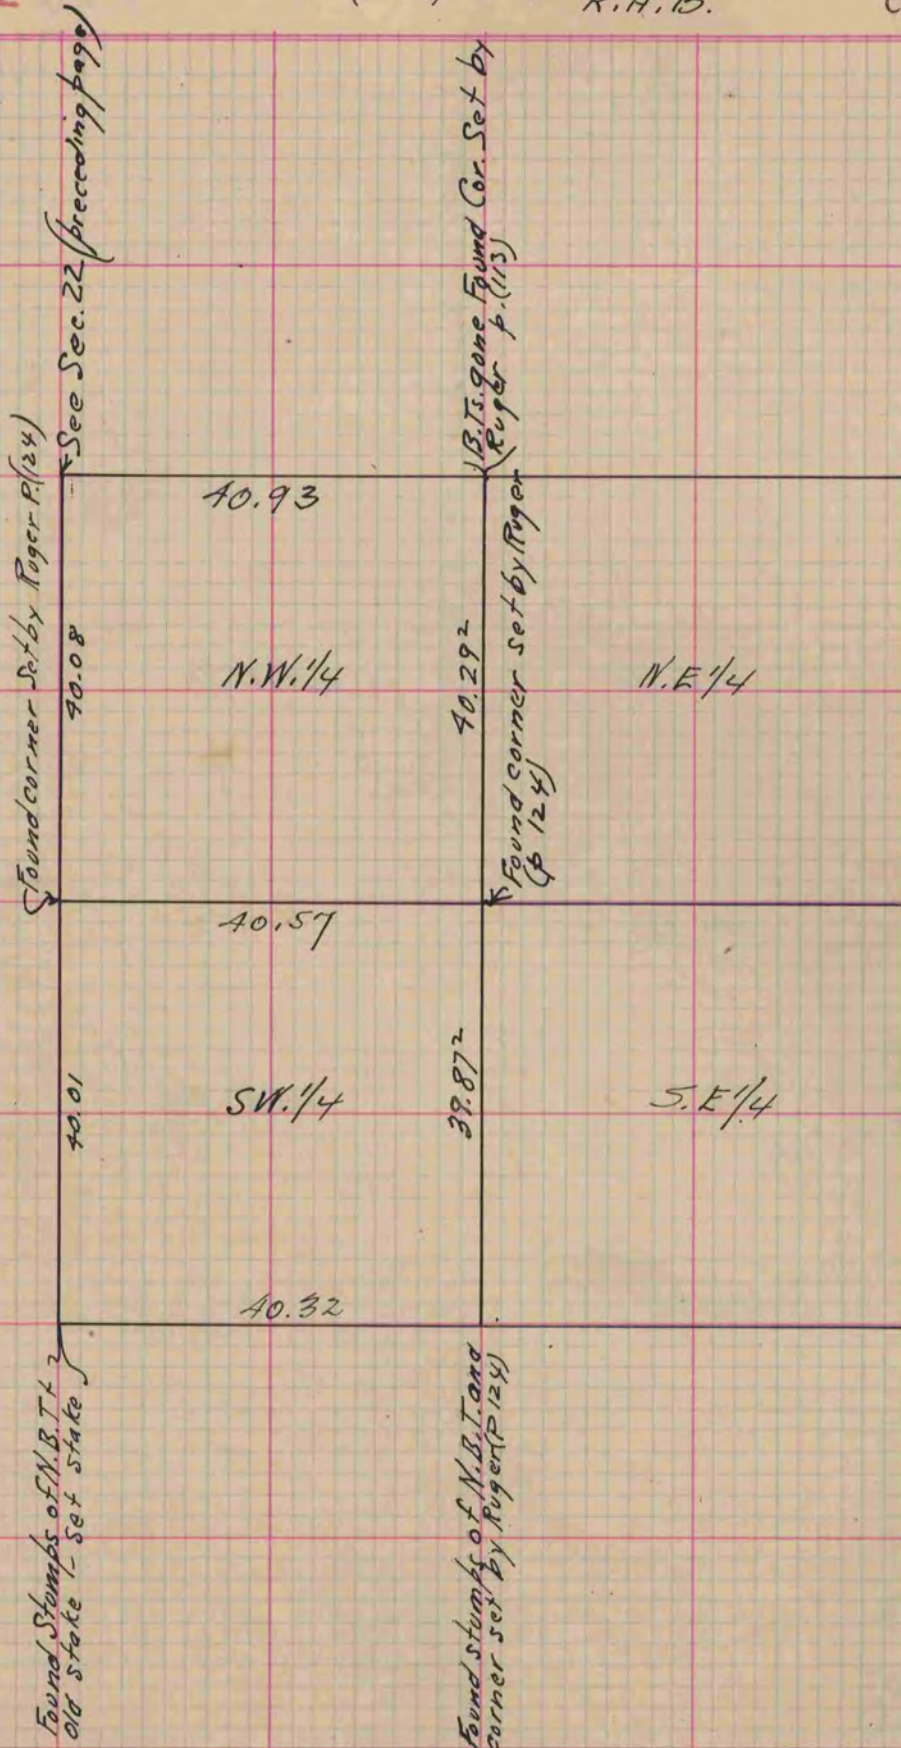 R.H.B.
See Sec. 22 (preceding page)
B.Ts. gone Found Cor. Set by
Ruger p. (113)
Found corner set by Ruger P. (124)
40.93
40.08
N.W. 1/4
40.29²
Found corner set by Ruger
(p 124)
N.E 1/4
40.57
40.01
SW. 1/4
39.87²
S.E 1/4
40.32
Found Stumps of N.B.T+
old stake - Set stake
Found stumps of N.B.T. and
corner set by Ruger (P 124)